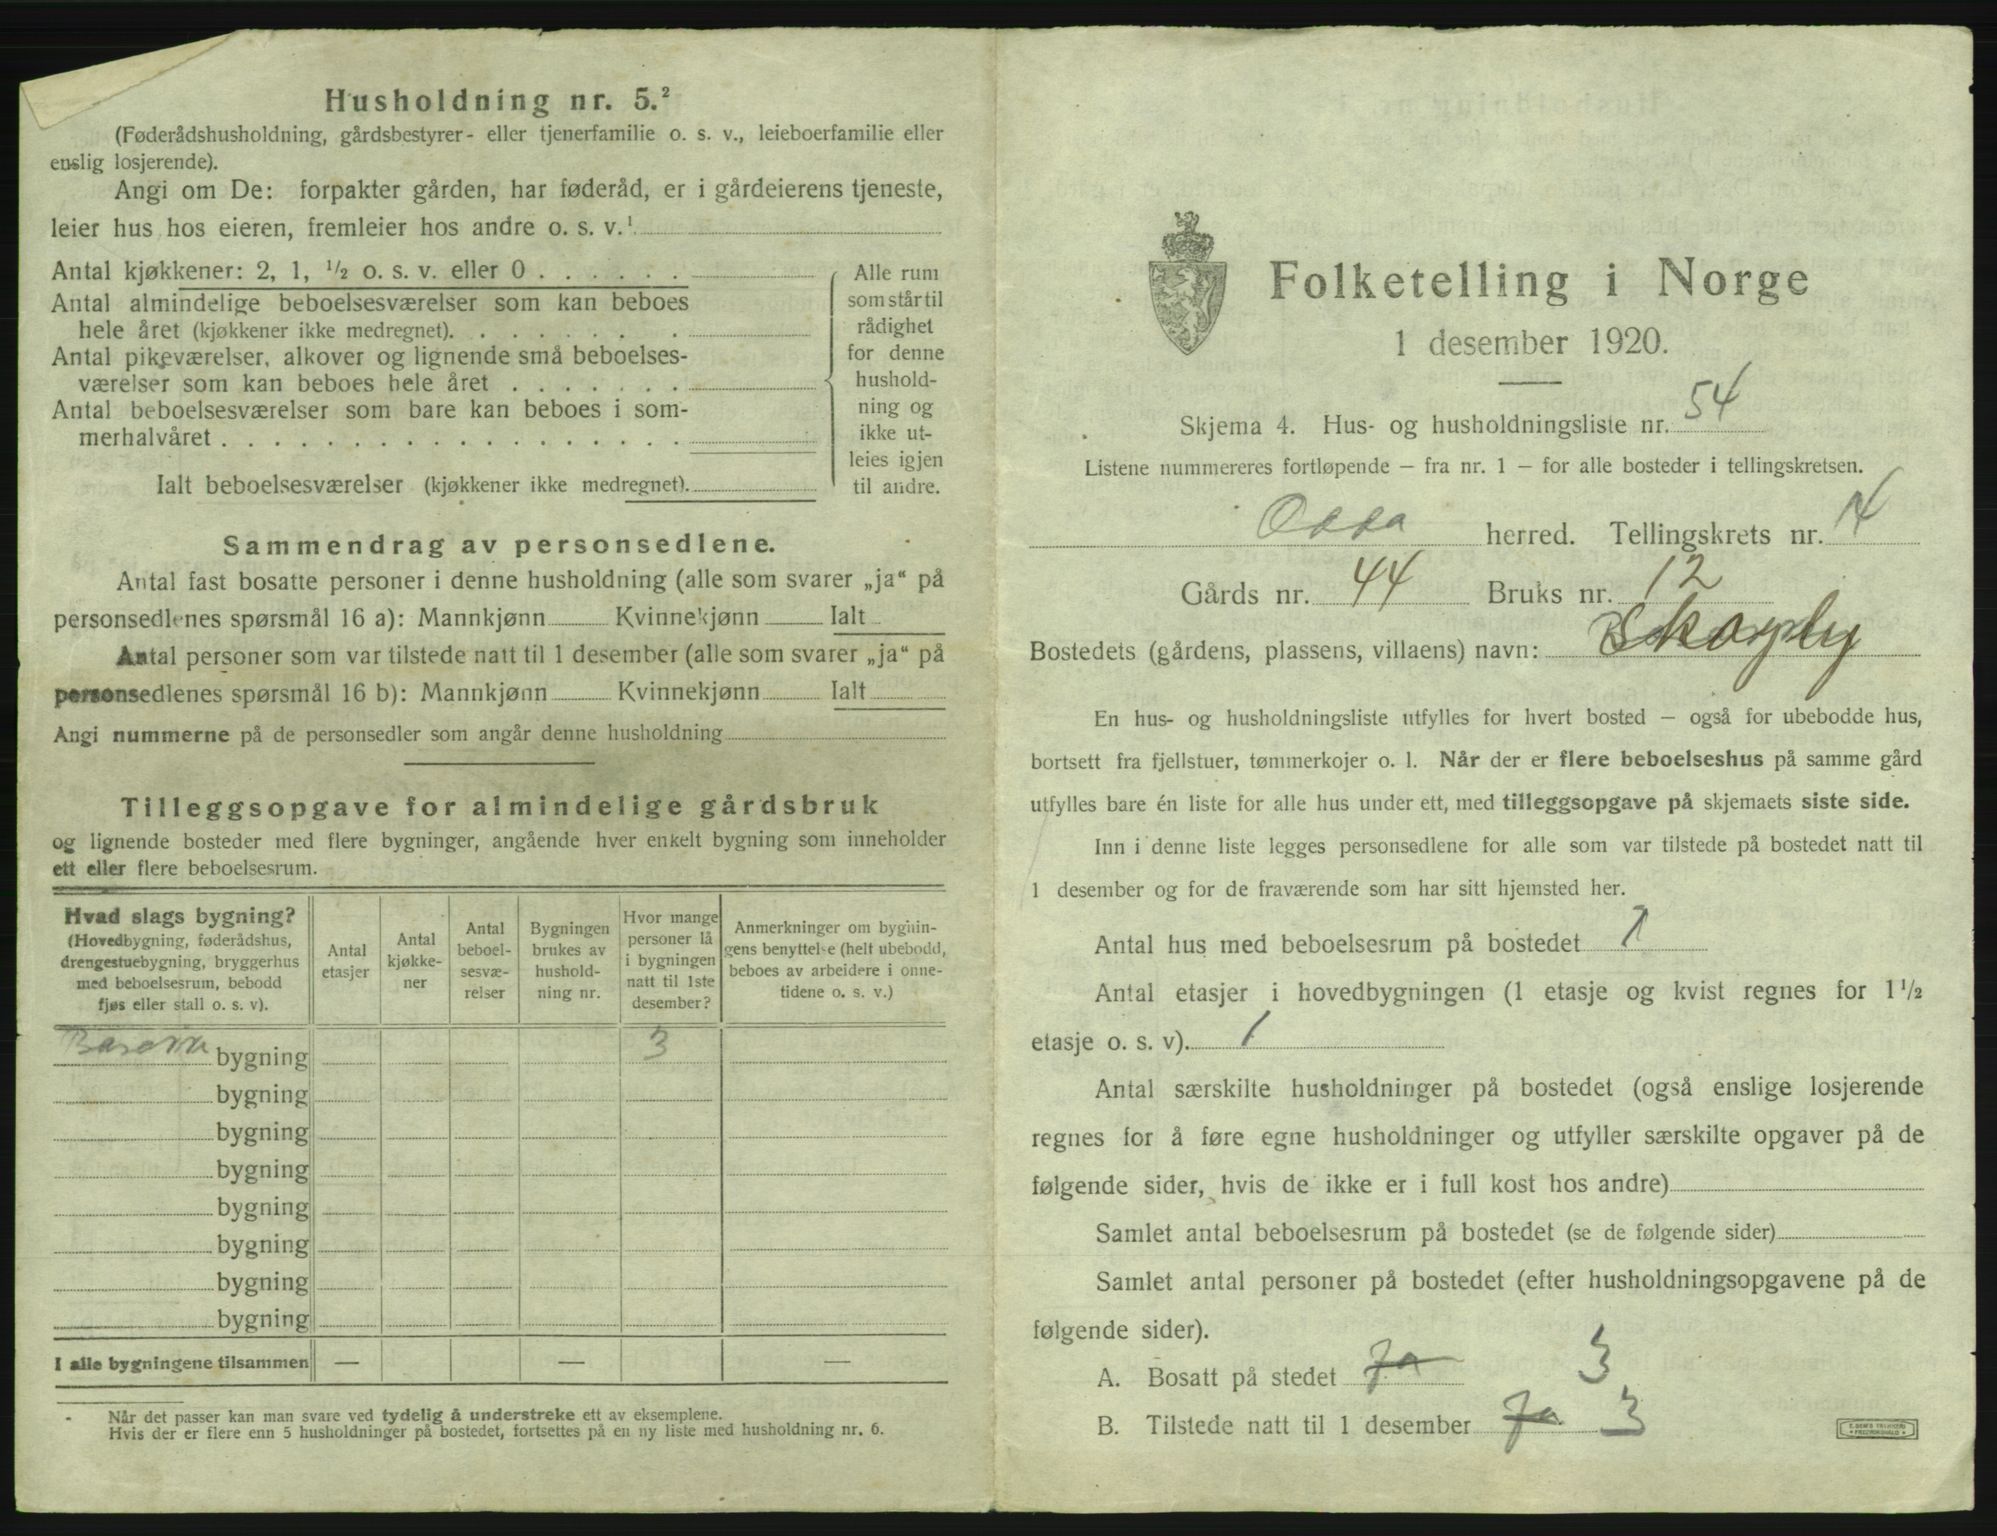 Husholdning nr. 5.²
(Føderådshusholdning, gårdsbestyrer- eller tjenerfamilie o. s. v., leieboerfamilie eller
enslig losjerende).
Angi om De: forpakter gården, har føderåd, er i gårdeierens tjeneste,
leier hus hos eieren, fremleier hos andre o. s. v.¹
Antal kjøkkener: 2, 1, ½ o. s. v. eller 0 . . . . . .
Antal almindelige beboelsesværelser som kan beboes
hele året (kjøkkener ikke medregnet). . . . . . . .
Antal pikeværelser, alkover og lignende små beboelses-
værelser som kan beboes hele året . . . . . . .
Antal beboelsesværelser som bare kan beboes i som-
merhalvåret . . . . . . . . . . . . . . . . . .
Ialt beboelsesværelser (kjøkkener ikke medregnet).
Alle rum
som står til
rådighet
for denne
hushold-
ning og
ikke ut-
leies igjen
til andre.
Sammendrag av personsedlene.
Antal fast bosatte personer i denne husholdning (alle som svarer „ja“ på
personsedlenes spørsmål 16 a): Mannkjønn Kvinnekjønn Ialt
Antal personer som var tilstede natt til 1 desember (alle som svarer „ja“ på
personsedlenes spørsmål 16 b): Mannkjønn Kvinnekjønn Ialt
Angi nummerne på de personsedler som angår denne husholdning
Tilleggsopgave for almindelige gårdsbruk
og lignende bosteder med flere bygninger, angående hver enkelt bygning som inneholder
ett eller flere beboelsesrum.
Hvad slags bygning?
(Hovedbygning, føderådshus,
drengestuebygning, bryggerhus
med beboelsesrum, bebodd
fjøs eller stall o. s. v).
Antal
etasjer
Antal
kjøkke-
ner
Antal
beboel-
sesvæ-
relser
Bygningen
brukes av
hushold-
ning nr.
Hvor mange
personer lå
i bygningen
natt til 1ste
desember?
Anmerkninger om bygnin-
gens benyttelse (helt ubebodd,
beboes av arbeidere i onne-
tidene o. s. v.)
bygning 3
bygning
bygning
bygning
bygning
bygning
bygning
bygning
I alle bygningene tilsammen — — —
Når det passer kan man svare ved tydelig å understreke ett av eksemplene.
Hvis der er flere enn 5 husholdninger på bostedet, fortsettes på en ny liste med husholdning nr. 6.
Folketelling i Norge
1 desember 1920.
Skjema 4. Hus- og husholdningsliste nr. 54
Listene nummereres fortløpende — fra nr. 1 — for alle bosteder i tellingskretsen.
herred. Tellingskrets nr.
Gårds nr. 44 Bruks nr. 12
Bostedets (gårdens, plassens, villaens) navn:
En hus- og husholdningsliste utfylles for hvert bosted — også for ubebodde hus,
bortsett fra fjellstuer, tømmerkojer o. l. Når der er flere beboelseshus på samme gård
utfylles bare én liste for alle hus under ett, med tilleggsopgave på skjemaets siste side.
Inn i denne liste legges personsedlene for alle som var tilstede på bostedet natt til
1 desember og for de fraværende som har sitt hjemsted her.
Antal hus med beboelsesrum på bostedet 1
Antal etasjer i hovedbygningen (1 etasje og kvist regnes for 1½
etasje o. s. v). 1
Antal særskilte husholdninger på bostedet (også enslige losjerende
regnes for å føre egne husholdninger og utfyller særskilte opgaver på de
følgende sider, hvis de ikke er i full kost hos andre)
Samlet antal beboelsesrum på bostedet (se de følgende sider)
Samlet antal personer på bostedet (efter husholdningsopgavene på de
følgende sider).
A. Bosatt på stedet Ja 3
B. Tilstede natt til 1 desember Ja 3